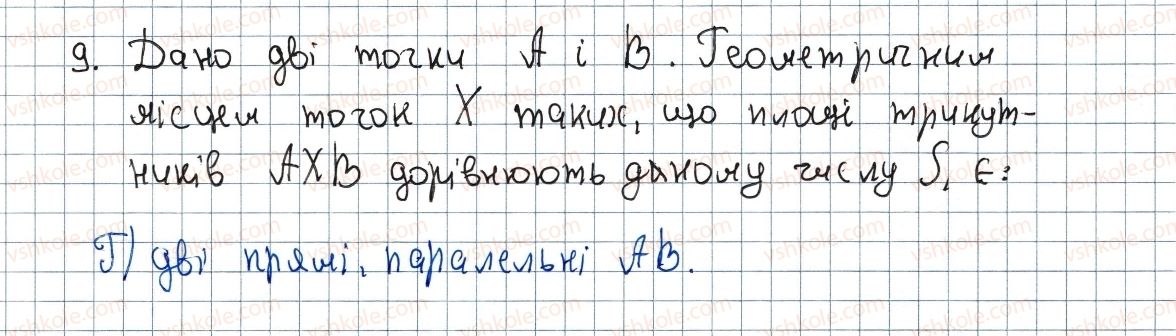 9. Дано дві точки A і B. Геометричним
місцем точок X таких, що площі трикут-
ників AXB дорівнюють даному числу S, є:
Г) дві прямі, паралельні AB.